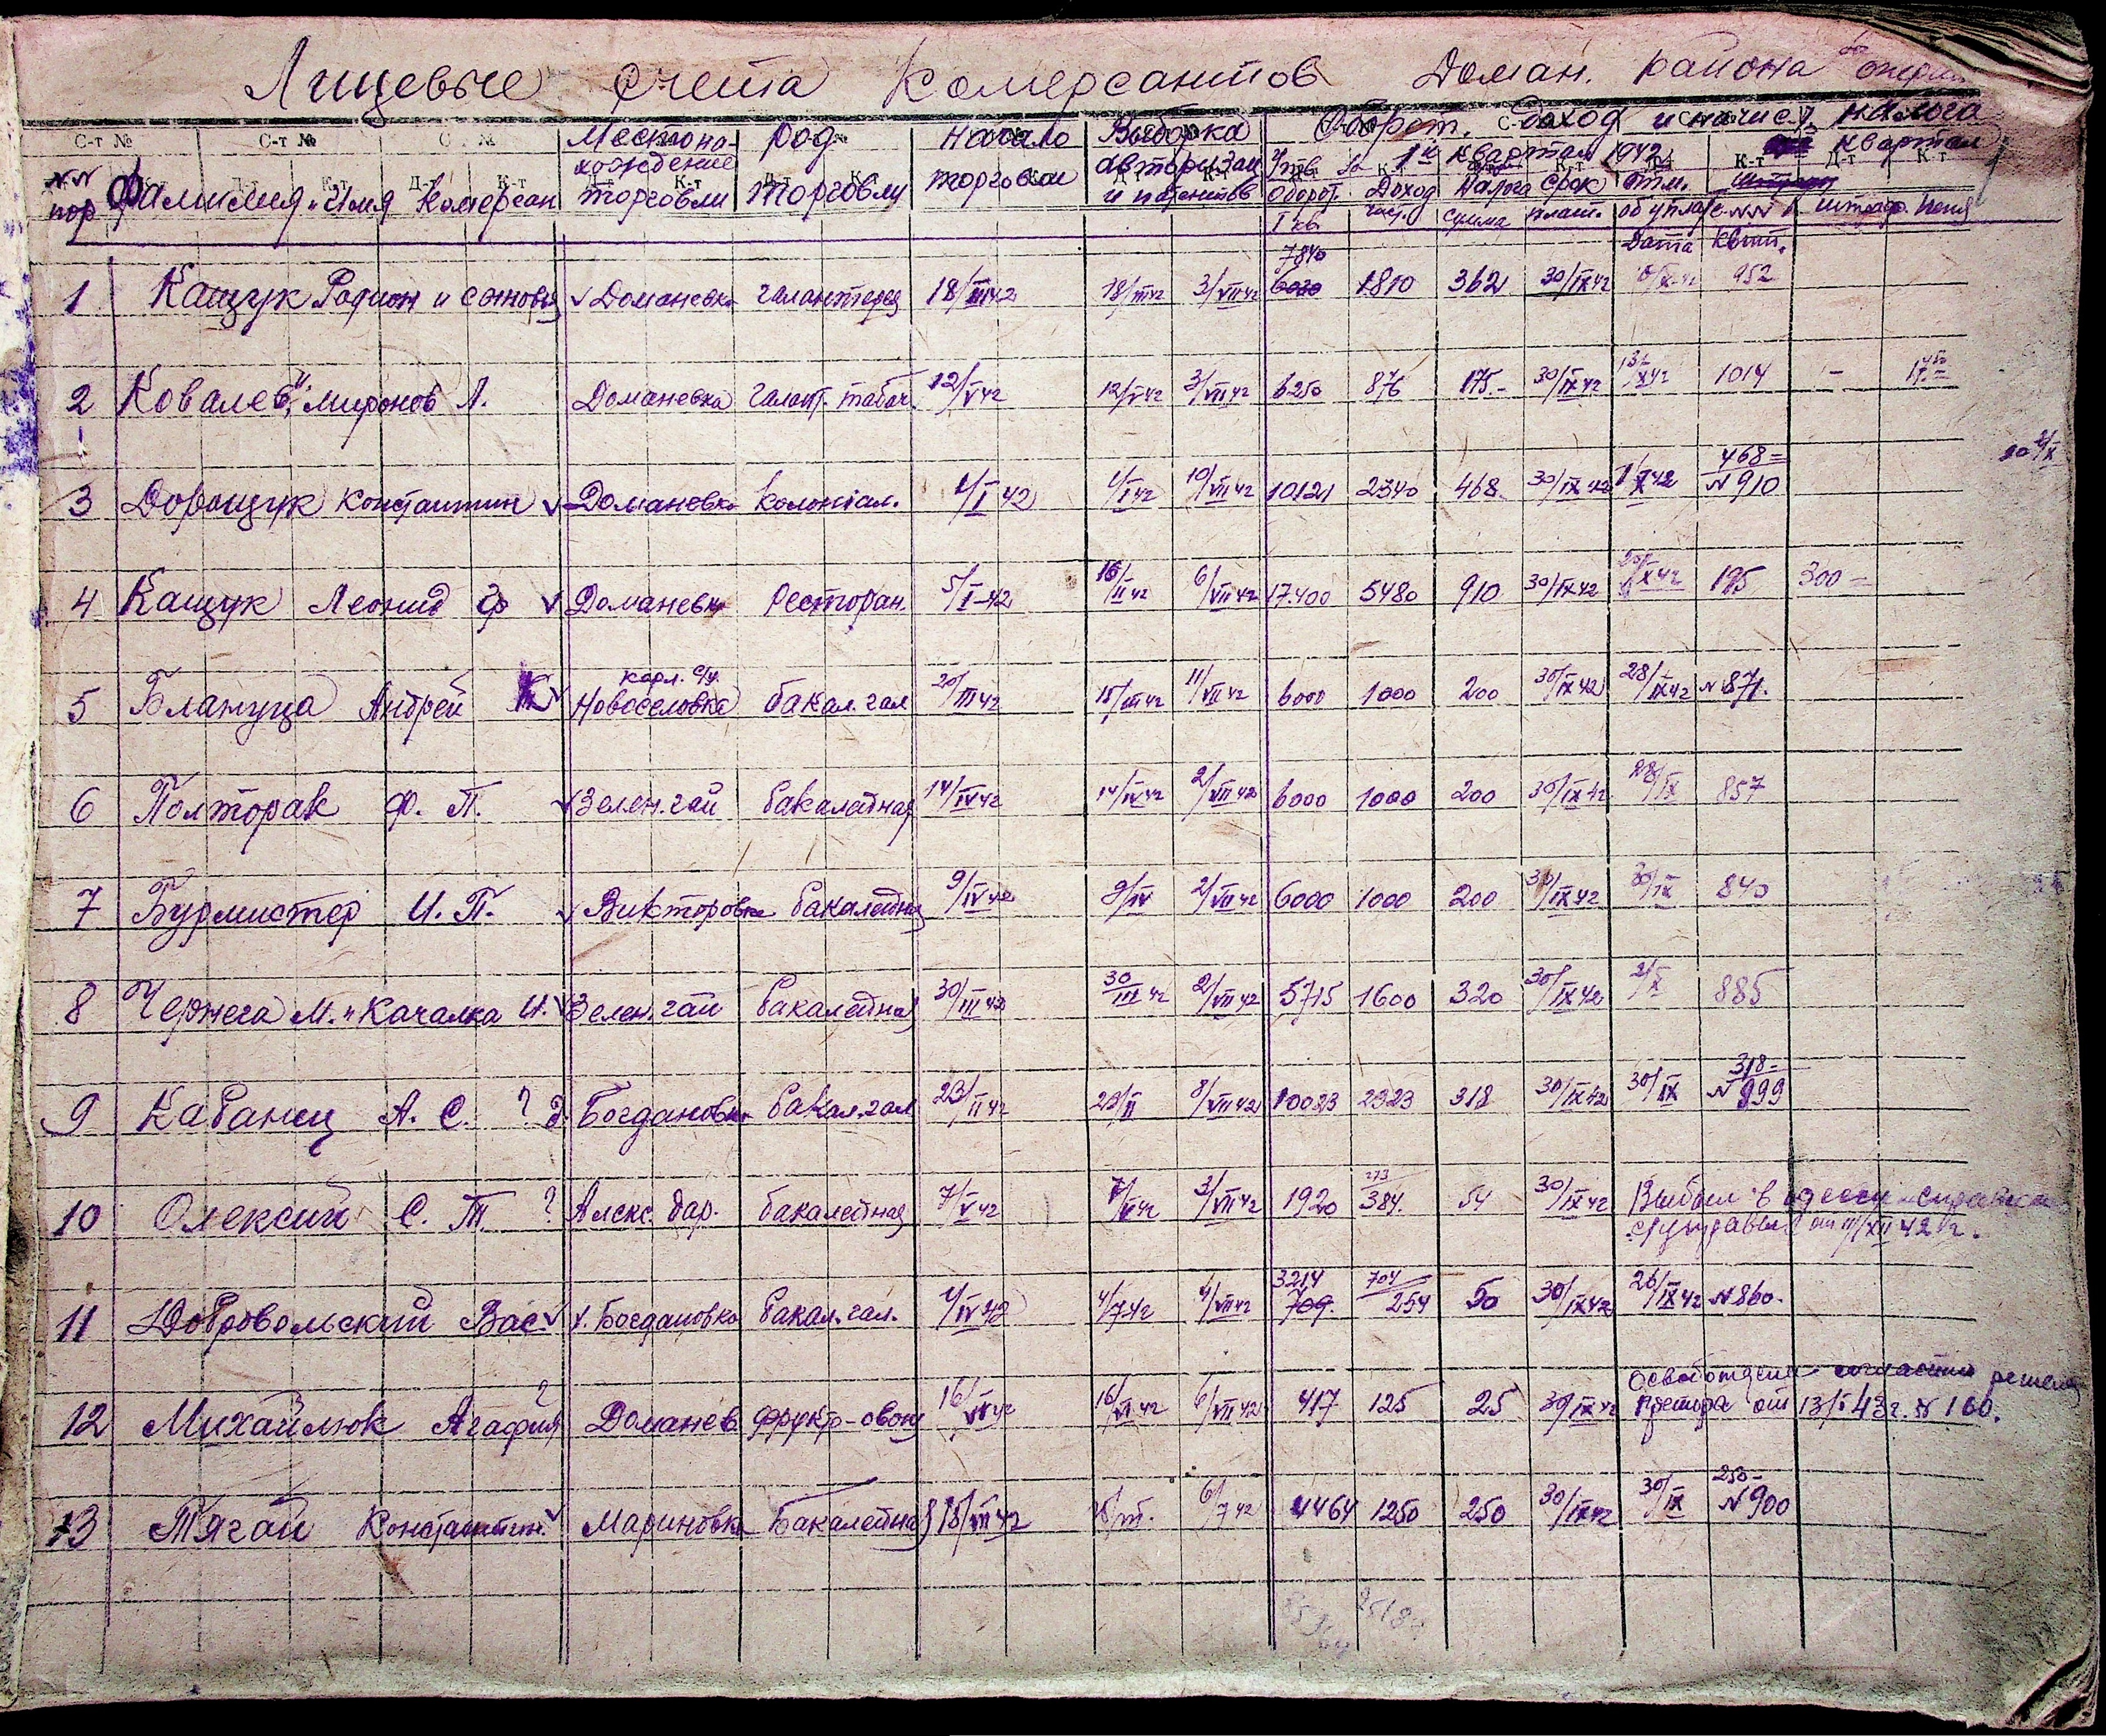 Лицевые счета Комерсантов Доман. района
С-т № С-т № Местона- род начало Выборка Оборот. Доход и начисл. налога
хождение авторизац Утв. за 1й квартал 1942 квартал
№№ Фамилия и Имя Комерсан торговли торговли торговли и патентов оборот. Доход налога срок отм.
пор I кв. част. сумма плат. об уплате №№ штраф. пеня
Дата квит.
7840
1 Кащук Родион и сыновья ✓ Доманевка галантерея 18/III 42 18/III 42 3/VII 42 6030 1810 362 30/IX 42 952
2 Ковалев и Миронов Л. Доманевка галант. табач. 12/V 42 12/V 42 3/VII 42 6250 876 175.- 30/IX 42 X 42 1014 -
468=
3 Дорощук Константин ✓ Доманевка колониал. 1/I 42 1/I 42 10/VII 42 10121 2340 468. 30/IX 42 1/X 42 № 910
4 Кащук Леонид Ф ✓ Доманевка Ресторан. 5/I-42 16/II 42 6/VII 42 17.400 5480 910 30/IX 42 20/X 42 195 300=
Карл. с/у.
5 Блажуца Андрей ✓ Новоселовка бакал. гал 20/III 42 18/III 42 11/VII 42 6000 1000 200 30/IX 42 28/IX 42 № 871.
6 Полторак Ф. П. ✓ Зелен. гай бакалейная 14/IV 42 14/IV 42 2/VII 42 6000 1000 200 30/IX 42 28/IX 857
7 Бурмистер И. П. ✓ Викторовка бакалейная 9/IV 42 9/IV 2/VII 42 6000 1000 200 30/IX 42 30/IX 840
8 Чернега М. и Качалка И. ✓ Зелен. гай бакалейная 30/III 42 30/III 42 2/VII 42 5715 1600 320 30/IX 42 2/X 885
318=
9 Кабанец А. С. ? Богдановка бакал. гал 23/II 42 23/II 8/VII 42 10023 2323 318 30/IX 42 30/IX № 999
273
10 Олексий С. Т ? Алекс. дар. бакалейная 7/V 42 7/V 42 3/VII 42 1920 384. 54 30/IX 42 Выбыл в одессу справка
от 11/XII 42 г.
3214 704
11 Добровольский Вас. ✓ ✓. Богдановка бакал. гал. 4/IV 42 4/7 42 4/VII 42 709. 254 50 30/IX 42 26/IX 42 № 860.
Освобождена согласно решен.
12 Михайлюк Агафия ? Доманев. фрукт-овощ 16/VI 42 16/VI 42 6/VII 42 417 125 25 30/IX 42 претора от 13/I 43 г. № 100.
250-
13 Тягай Константин. ✓ Мариновка Бакалейная 18/III 42 18/III. 6/7 42 4464 1250 250 30/IX 42 30/IX № 900